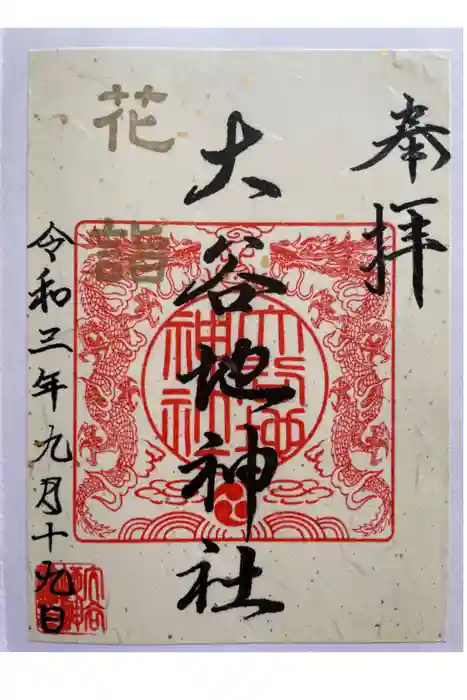 奉拝
大谷地神社
花詣
令和三年九月十九日
大谷地神社